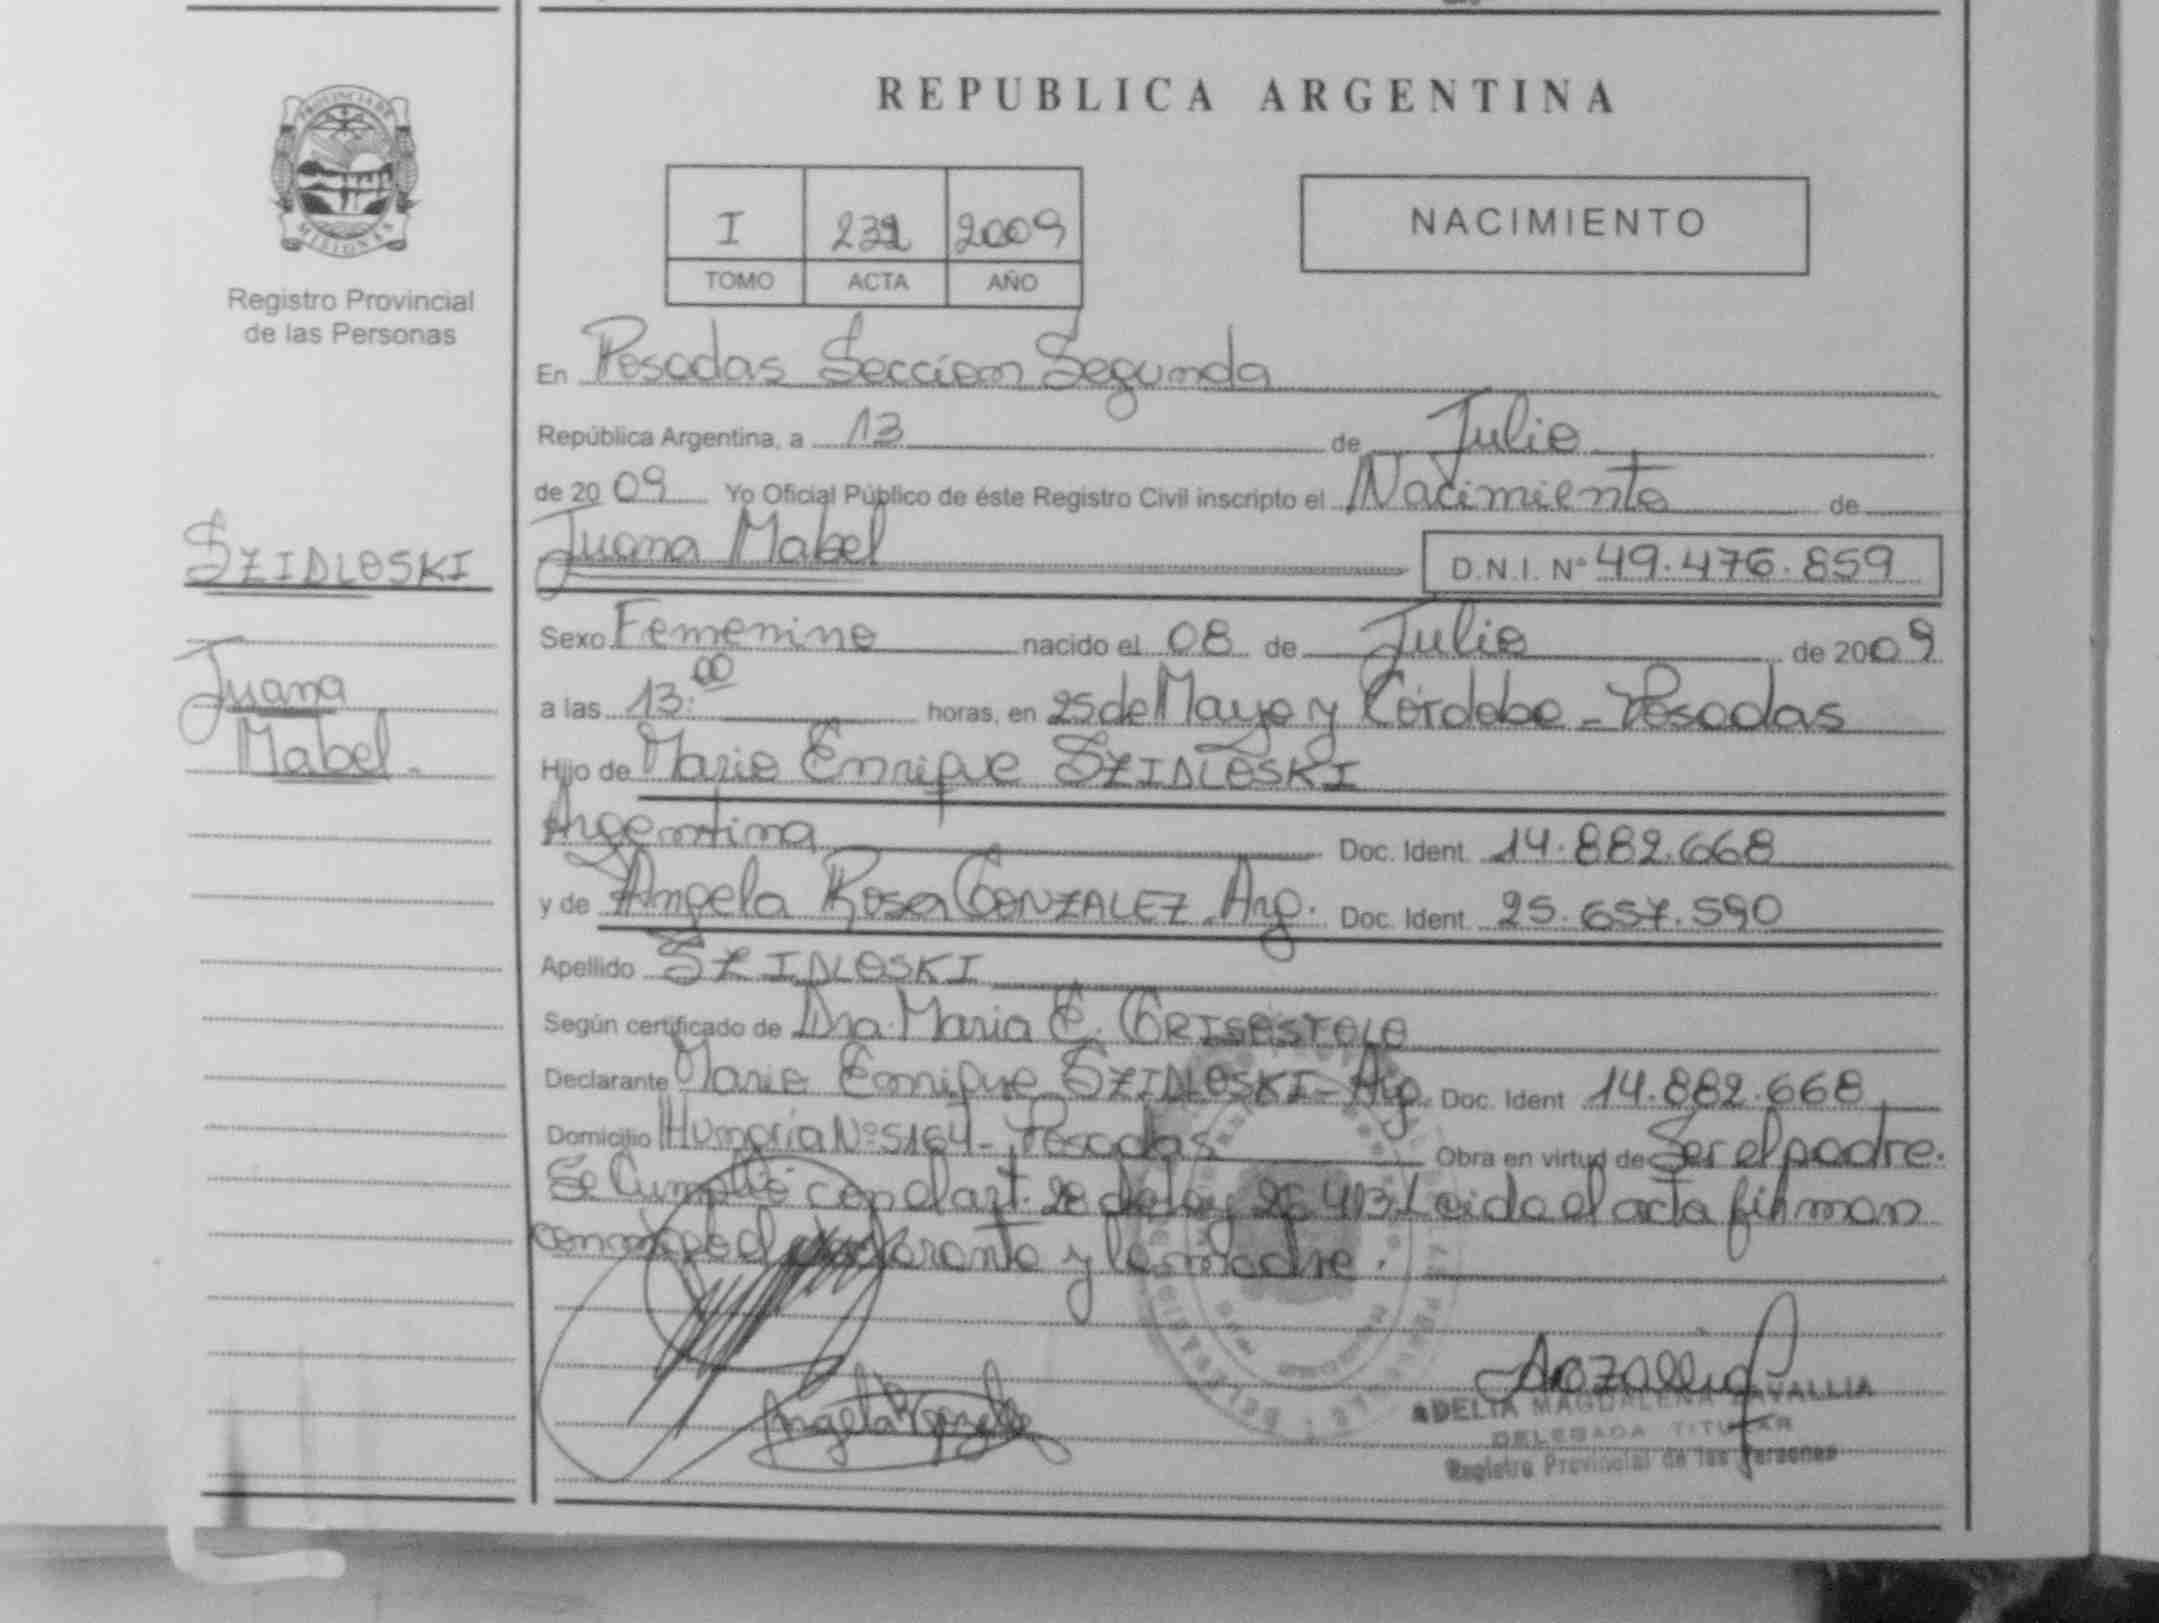 REPUBLICA ARGENTINA
PROVINCIA DE
MISIONES
Registro Provincial
de las Personas
I 2009
TOMO ACTA AÑO
NACIMIENTO
En Posadas Seccion Segunda
República Argentina, a 13 de Julio
de 2009 Yo Oficial Público de éste Registro Civil inscripto el Nacimiento de
SZIDLOSKI
Juana Mabel D.N.I. Nº 49.476.859
Sexo Femenino nacido el 08 de Julio de 2009
Juana
Mabel.
a las 13:00 horas, en 25 de Mayo y Cordoba - Posadas
Hijo de Mario Enrique SZIDLOSKI
Argentina Doc. Ident. 14.882.668
y de Angela Rosa GONZALEZ - Arg. Doc. Ident. 25.657.590
Apellido SZIDLOSKI
Según certificado de Dra. Maria E.
Declarante Mario Enrique SZIDLOSKI - Arg. Doc. Ident 14.882.668
Domicilio Hungria Nº 5164 - Posadas Obra en virtud de Ser el padre.
Se Cumplió con el art. 28 de ley 26.413. Leida el acta firman
conmigo el y la madre.
Angela R Gonzalez
ADELIA MAGDALENA ZAVALLIA
DELEGADA TITULAR
Registro Provincial de las Personas